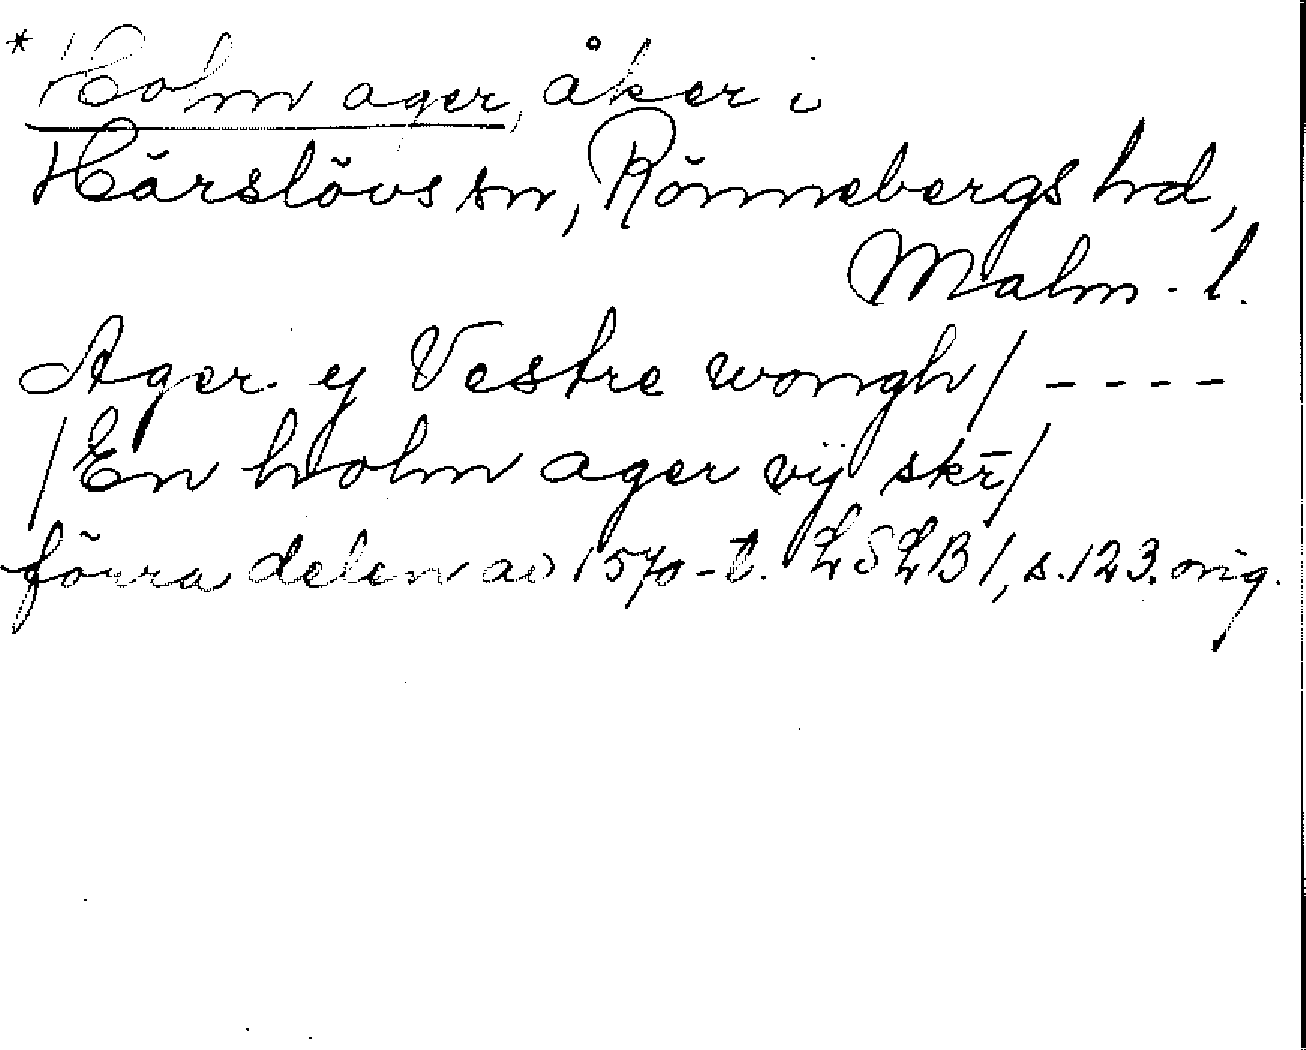 * Holm ager, åker i
Härslövs sn, Rönnebergs hd,
Malm. l.
Ager ej Vestre wongh / ----
/ En holm ager vij skr̄ /
förra delen av 1570-t. LSLB 1, s. 123. orig.